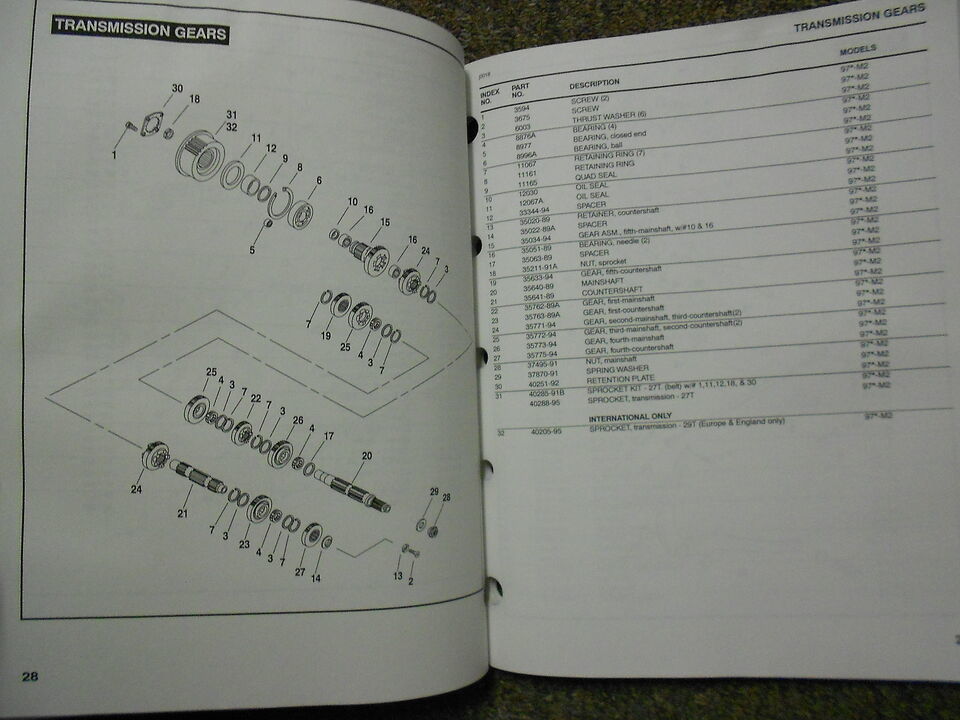 TRANSMISSION GEARS
30
18
31
32
11
12
9
8
6
1
5
10
16
15
16
24
7
3
7
19
25
4
3
7
25
4
3
7
22
7
3
26
4
17
20
24
21
7
3
23
4
3
7
27
14
29
28
13
2
28
TRANSMISSION GEARS
INDEX NO. PART NO. DESCRIPTION MODELS
1 3594 SCREW (2) 97*-M2
2 3675 SCREW 97*-M2
3 6003 THRUST WASHER (6) 97*-M2
4 8876A BEARING (4) 97*-M2
5 8977 BEARING, closed end 97*-M2
6 8996A BEARING, ball 97*-M2
7 11067 RETAINING RING (7) 97*-M2
8 11161 RETAINING RING 97*-M2
9 11165 QUAD SEAL 97*-M2
10 12030 OIL SEAL 97*-M2
11 12067A OIL SEAL 97*-M2
12 33344-94 SPACER 97*-M2
13 35020-89 RETAINER, countershaft 97*-M2
14 35022-89A SPACER 97*-M2
15 35034-94 GEAR ASM., fifth-mainshaft, w/#10 & 16 97*-M2
16 35051-89 BEARING, needle (2) 97*-M2
17 35063-89 SPACER 97*-M2
18 35211-91A NUT, sprocket 97*-M2
19 35633-94 GEAR, fifth-countershaft 97*-M2
20 35640-89 MAINSHAFT 97*-M2
21 35641-89 COUNTERSHAFT 97*-M2
22 35762-89A GEAR, first-mainshaft 97*-M2
23 35763-89A GEAR, first-countershaft 97*-M2
24 35771-94 GEAR, second-mainshaft, third-countershaft(2) 97*-M2
25 35772-94 GEAR, third-mainshaft, second-countershaft(2) 97*-M2
26 35773-94 GEAR, fourth-mainshaft 97*-M2
27 35775-94 GEAR, fourth-countershaft 97*-M2
28 37495-91 NUT, mainshaft 97*-M2
29 37870-91 SPRING WASHER 97*-M2
30 40251-92 RETENTION PLATE 97*-M2
31 40285-91B SPROCKET KIT - 27T. (belt) w/# 1,11,12,18, & 30 97*-M2
40288-95 SPROCKET, transmission - 27T 97*-M2
INTERNATIONAL ONLY
32 40205-95 SPROCKET, transmission - 29T (Europe & England only) 97*-M2